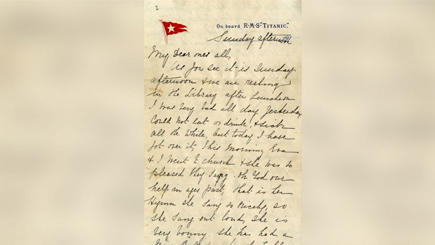 On board R.M.S. "TITANIC."
Sunday afternoon
My Dear ones all,
As you see it is Sunday
afternoon & we are resting
in the Library after Luncheon
I was very bad all day yesterday
could not eat or drink & sick
all the while, but today I have
got over it, This morning Eva
& I went to church & she was so
pleased they sang Oh God our
help in ages past, that is her
Hymn she sang so nicely, so
she sang out loudly she is
very bonny she has had a